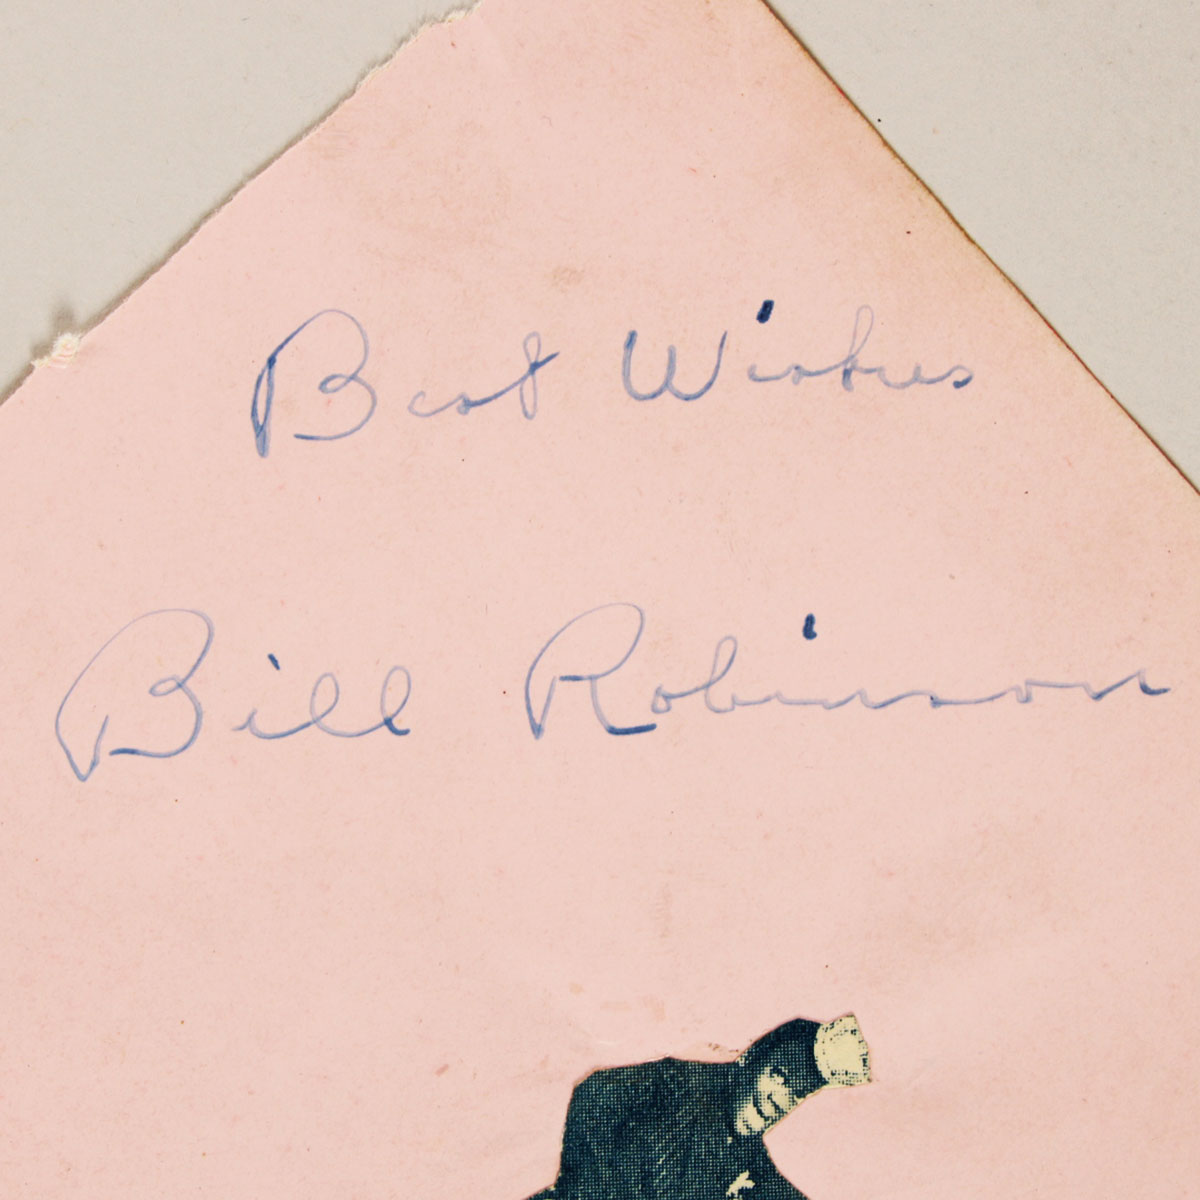 Best Wishes
Bill Robinson